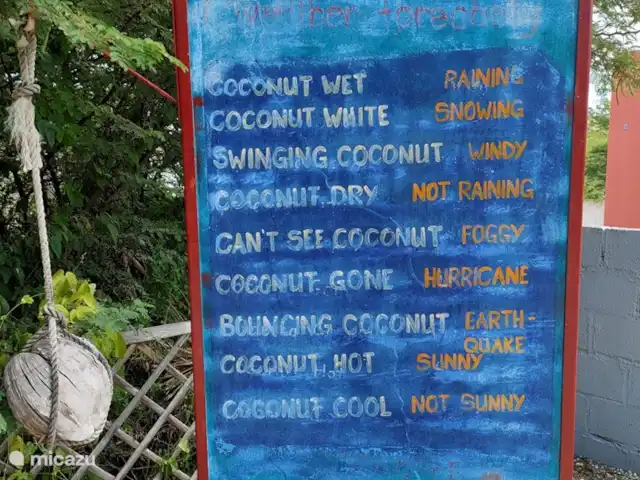 Weather forecast
COCONUT WET RAINING
COCONUT WHITE SNOWING
SWINGING COCONUT WINDY
COCONUT DRY NOT RAINING
CAN'T SEE COCONUT FOGGY
COCONUT GONE HURRICANE
BOUNCING COCONUT EARTH-
QUAKE
COCONUT HOT SUNNY
COCONUT COOL NOT SUNNY
micazu